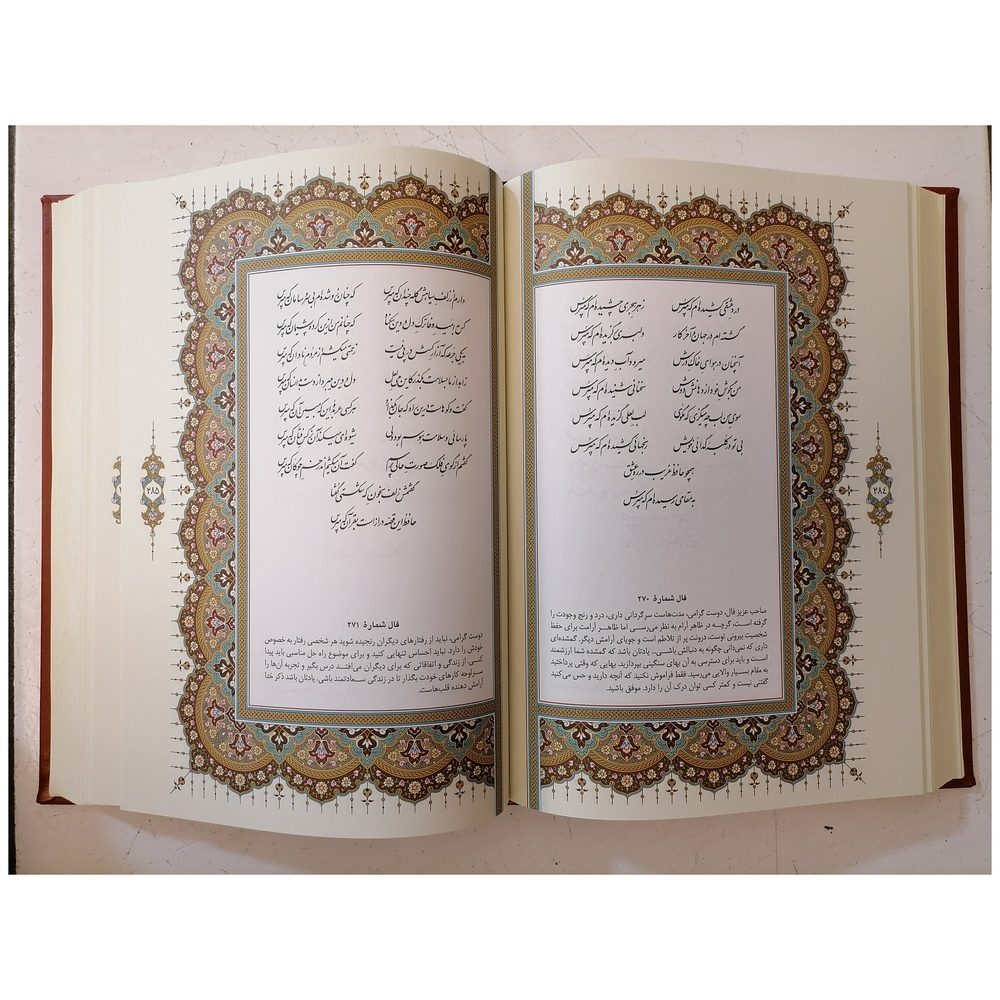 درد عشقی کشیده‌ام که مپرس زهر هجری چشیده‌ام که مپرس
گشته‌ام در جهان و آخر کار دلبری برگزیده‌ام که مپرس
آنچنان در هوای خاک درش میرود آب دیده‌ام که مپرس
من بگوش خود از دهانش دوش سخنانی شنیده‌ام که مپرس
سوی من لب چه میگزی که مگوی لب لعلی گزیده‌ام که مپرس
بی تو در کلبه گدائی خویش رنجهائی کشیده‌ام که مپرس
همچو حافظ غریب در ره عشق
به مقامی رسیده‌ام که مپرس
فال شمارهٔ ۲۷۰
صاحب عزیز فال، دوست گرامی، مدت‌هاست سرگردانی داری، درد و رنج وجودت را
گرفته است، گرچه در ظاهر آرام به نظر می‌رسی اما ظاهر آرامت برای حفظ
شخصیت بیرونی توست، درونت پر از تلاطم است و جویای آرامش دیگر. گمشده‌ای
داری که نمی‌دانی چگونه به دنبالش باشی... یادتان باشد که گمشده شما ارزشمند
است و باید برای دسترسی به آن بهای سنگینی بپردازید. بهایی که وقتی پرداختید
به مقام بسیار والایی می‌رسید. فقط فراموش نکنید که آنچه دارید و حس می‌کنید
گفتنی نیست و کمتر کسی توان درک آن را دارد. موفق باشید.
۲۸٤
دارم از زلف سیاهش گله چندان که مپرس که چنان زو شده‌ام بی سر و سامان که مپرس
کس به امید وفا ترک دل و دین مکناد که چنانم من ازین کرده پشیمان که مپرس
بیکی جرعه که آزار کسش در پی نیست زحمتی میکشم از مردم نادان که مپرس
زاهد از ما بسلامت بگذر کاین می لعل دل و دین میبرد از دست بدانسان که مپرس
گفت‌وگوهاست درین راه که جان بگدازد هر کسی عربده‌ای این که مبین آن که مپرس
پارسائی و سلامت هوسم بود ولی شیوه‌ای میکند آن نرگس فتان که مپرس
گفتم از گوی فلک صورت حالی پرسم گفت آن میکشم اندر خم چوگان که مپرس
گفتمش زلف بخون که شکستی گفتا
حافظ این قصه درازست بقرآن که مپرس
فال شمارهٔ ۲۷۱
دوست گرامی، نباید از رفتارهای دیگران رنجیده شوید هر شخصی رفتار به خصوص
خودش را دارد. نباید احساس تنهایی کنید و برای موضوع راه حل مناسبی باید پیدا
کنی. از زندگی و اتفاقاتی که برای دیگران می‌افتد درس بگیر و تجربه آن‌ها را
سرلوحه کارهای خودت بگذار تا در زندگی سعادتمند باشی. یادتان باشد ذکر خدا
آرامش دهنده قلب‌هاست.
۲۸۵